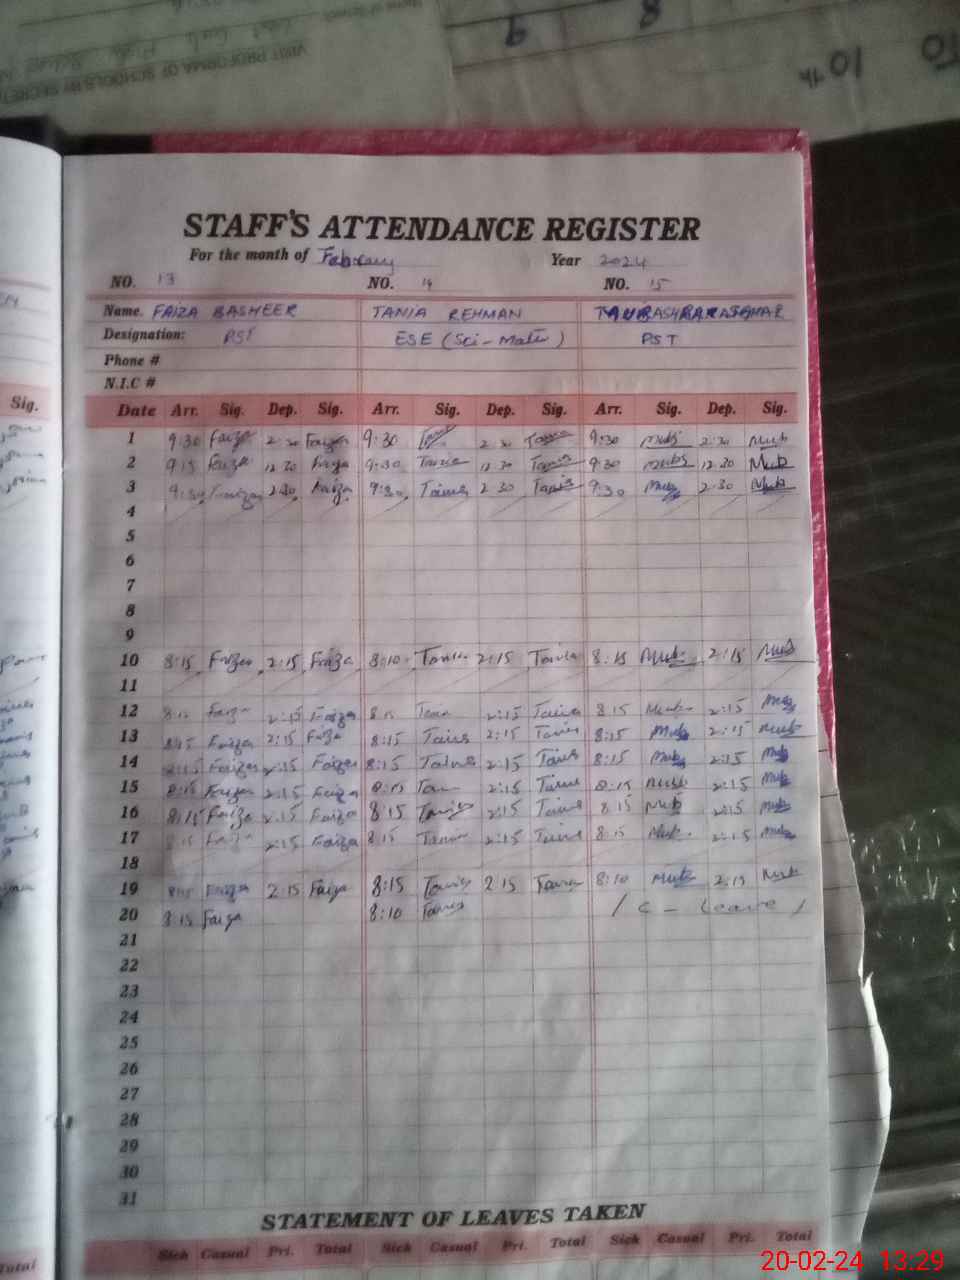 VISIT PROFORMA OF SCHOOLS BY SECRET
8
9
10 th
10
STAFF'S ATTENDANCE REGISTER
For the month of February Year 2024
NO. 13 NO. 14 NO. 15
Name. FAIZA BASHEER TANIA REHMAN
Designation: PST ESE (Sci-Math) PST
Phone #
N.I.C #
Sig.
Date Arr. Sig. Dep. Sig. Arr. Sig. Dep. Sig. Arr. Sig. Dep. Sig.
1 9:30 Faiza 2:30 Faiza 9:30 Tania 2:30 Tania 9:30 Mub 2:30 Mub
2 9:15 Faiza 12:30 Faiza 9:30 Tania 12:30 Tania 9:30 Mub 12:30 Mub
3 9:30 Faiza 2:30 Faiza 9:30 Tania 2:30 Tania 9:30 Mub 2:30 Mub
4
5
6
7
8
9
10 8:15 Faiza 2:15 Faiza 8:10 Tania 2:15 Tania 8:15 Mub 2:15 Mub
11
12 8:15 Faiza 2:15 Faiza 8:15 Tania 2:15 Tania 8:15 Mub 2:15 Mub
13 8:15 Faiza 2:15 Faiza 8:15 Tania 2:15 Tania 8:15 Mub 2:15 Mub
14 8:15 Faiza 2:15 Faiza 8:15 Tania 2:15 Tania 8:15 Mub 2:15 Mub
15 8:15 Faiza 2:15 Faiza 8:15 Tania 2:15 Tania 8:15 Mub 2:15 Mub
16 8:15 Faiza 2:15 Faiza 8:15 Tania 2:15 Tania 8:15 Mub 2:15 Mub
17 8:15 Faiza 2:15 Faiza 8:15 Tania 2:15 Tania 8:15 Mub 2:15 Mub
18
19 8:15 Faiza 2:15 Faiza 8:15 Tania 2:15 Tania 8:10 Mub 2:15 Mub
20 8:15 Faiza 8:10 Tania / C - Leave /
21
22
23
24
25
26
27
28
29
30
31
STATEMENT OF LEAVES TAKEN
Total
Sick Casual Pri. Total Sick Casual Pri. Total Sick Casual Pri. Total
20-02-24 13:29